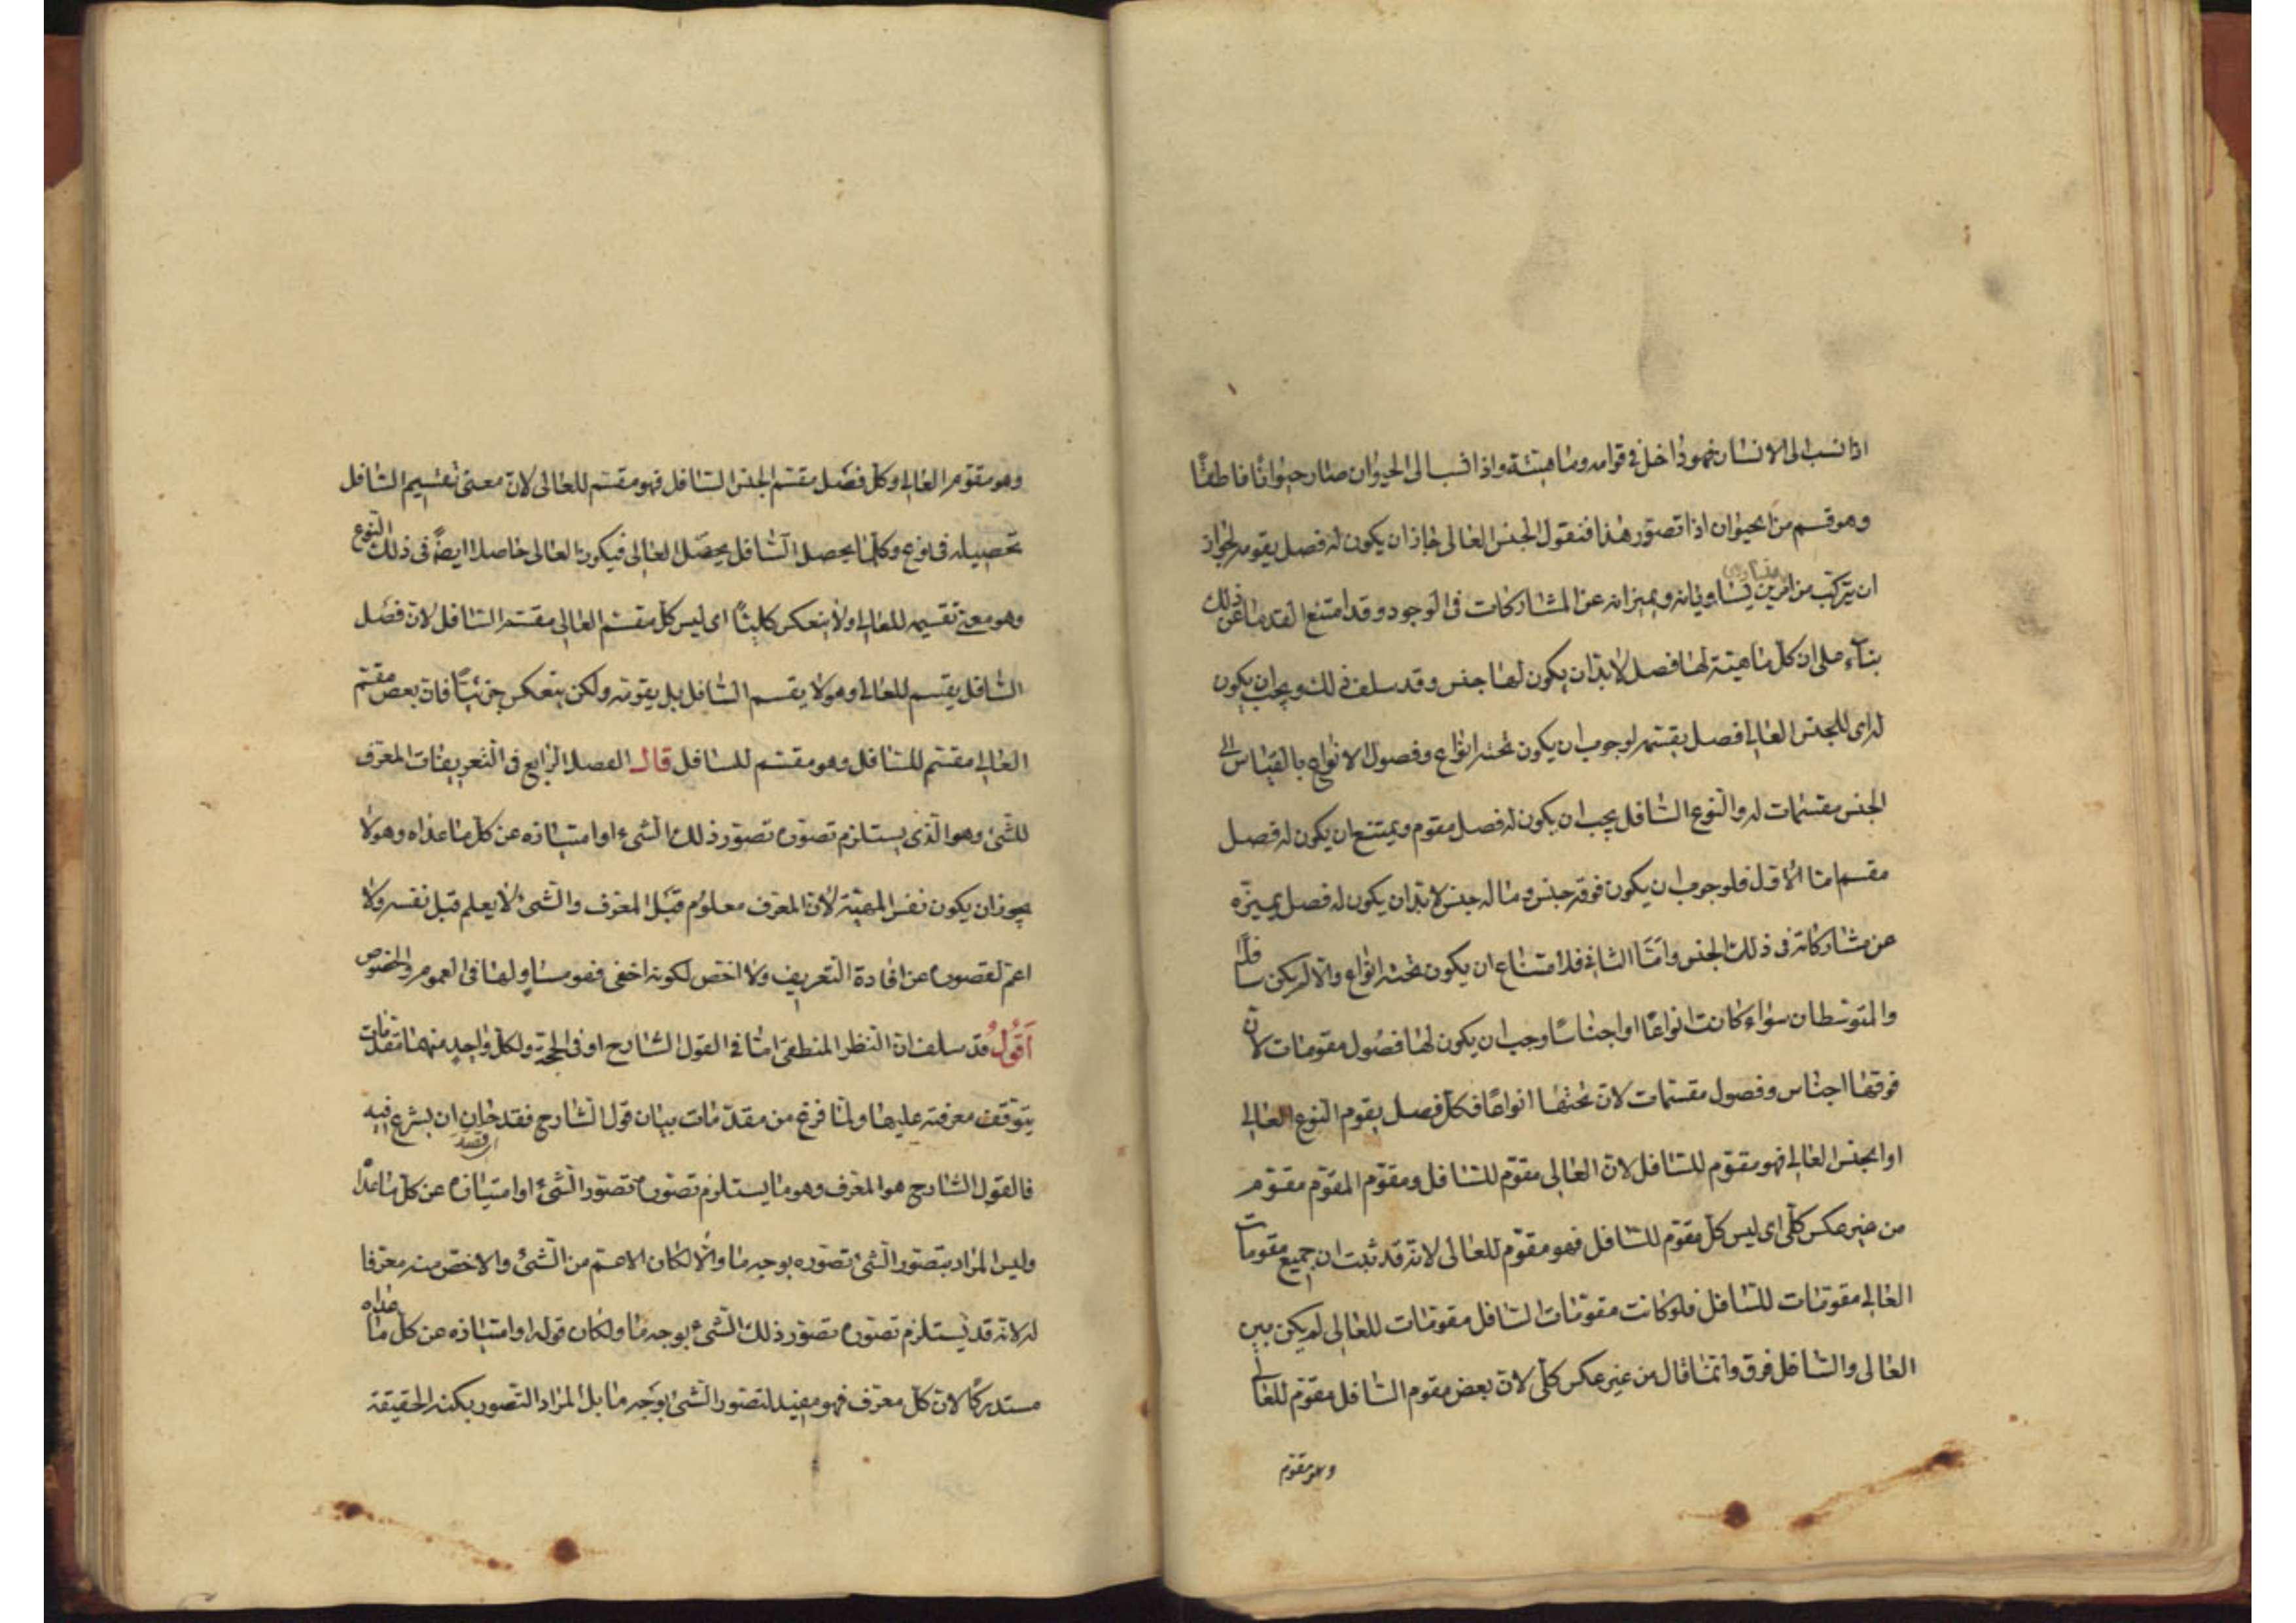 اذا نسب الى الانسان فهو داخل فى قوامه وماهيته واذا انسب الى الحيوان صار حيوانا ناطقا
وهو قسم من الحيوان اذا تصور هذا فنقول الجنس العالى جاز ان يكون له فصل يقومه لجواز
ان يتركب من امرين يساويانه ويميزانه عن المشاركات فى الوجود وقد امتنع القدماء عن ذلك
بناء على ان كل ماهية لها فصل لابد ان يكون لها جنس وقد سلف ذلك ويجب ان يكون
له اى للجنس العالى فصل يقسمه لوجوب ان يكون تحته انواع وفصول الانواع بالقياس الى
الجنس مقسمات له والنوع السافل يجب ان يكون له فصل مقوم ويمتنع ان يكون له فصل
مقسم اما الاول فلوجوب ان يكون فوقه جنس وما له جنس لابد ان يكون له فصل يميزه
عن مشاركاته فى ذلك الجنس واما الثانى فلامتناع ان يكون تحته انواع والا لم يكن سافلا
والمتوسطان سواء كانت انواعا او اجناسا وجب ان يكون لها فصول مقومات لان
فوقها اجناس وفصول مقسمات لان تحتها انواعا فكل فصل يقوم النوع العالى
او الجنس العالى فهو مقوم للسافل لان العالى مقوم للسافل ومقوم المقوم مقوم
من غير عكس كلى اى ليس كل مقوم للسافل فهو مقوم للعالى لانه قد ثبت ان جميع مقومات
العالى مقومات للسافل فلو كانت مقومات السافل مقومات للعالى لم يكن بين
العالى والسافل فرق وانما قال من غير عكس كلى لان بعض مقوم السافل مقوم للعالى
وهو مقوم
وهو مقوم العالى وكل فصل مقسم الجنس السافل فهو مقسم للعالى لان معنى تقسيم السافل
تحصيله فى نوع وكلما يحصل السافل يحصل العالى فيكون العالى حاصلا ايضا فى ذلك النوع
وهو معنى تقسيمه للعالى ولا ينعكس كليا اى ليس كل مقسم العالى مقسم السافل لان فصل
السافل يقسم للعالى وهو لا يقسم السافل بل يقومه ولكن ينعكس جزئيا فان بعض مقسم
العالى مقسم للسافل وهو مقسم للسافل قال الفصل الرابع فى التعريفات المعرف
للشىء وهو الذى يستلزم تصوره تصور ذلك الشىء او امتيازه عن كل ما عداه وهو لا
يجوز ان يكون نفس المهية لان المعرف معلوم قبل المعرف والشىء لا يعلم قبل نفسه ولا
اعم لقصوره عن افادة التعريف ولا اخص لكونه اخفى فهو مساو لها فى العموم والخصوص
اقول قد سلف ان النظر المنطقى اما فى القول الشارح او فى الحجة ولكل واحد منهما مقدمات
يتوقف معرفته عليها ولما فرغ من مقدمات بيان قول الشارح فقد حان ان يشرع فيه
فالقول الشارح هو المعرف وهو ما يستلزم تصوره تصور الشىء او امتيازه عن كل ما عداه
وليس المراد بتصور الشىء تصوره بوجه ما والا لكان الاعم من الشىء والاخص منه معرفا
له لانه قد يستلزم تصوره تصور ذلك الشىء بوجه ما ولكان قوله او امتيازه عن كل ما عداه
مستدركا لان كل معرف فهو مفيد لتصور الشىء بوجه ما بل المراد التصور بكنه الحقيقة